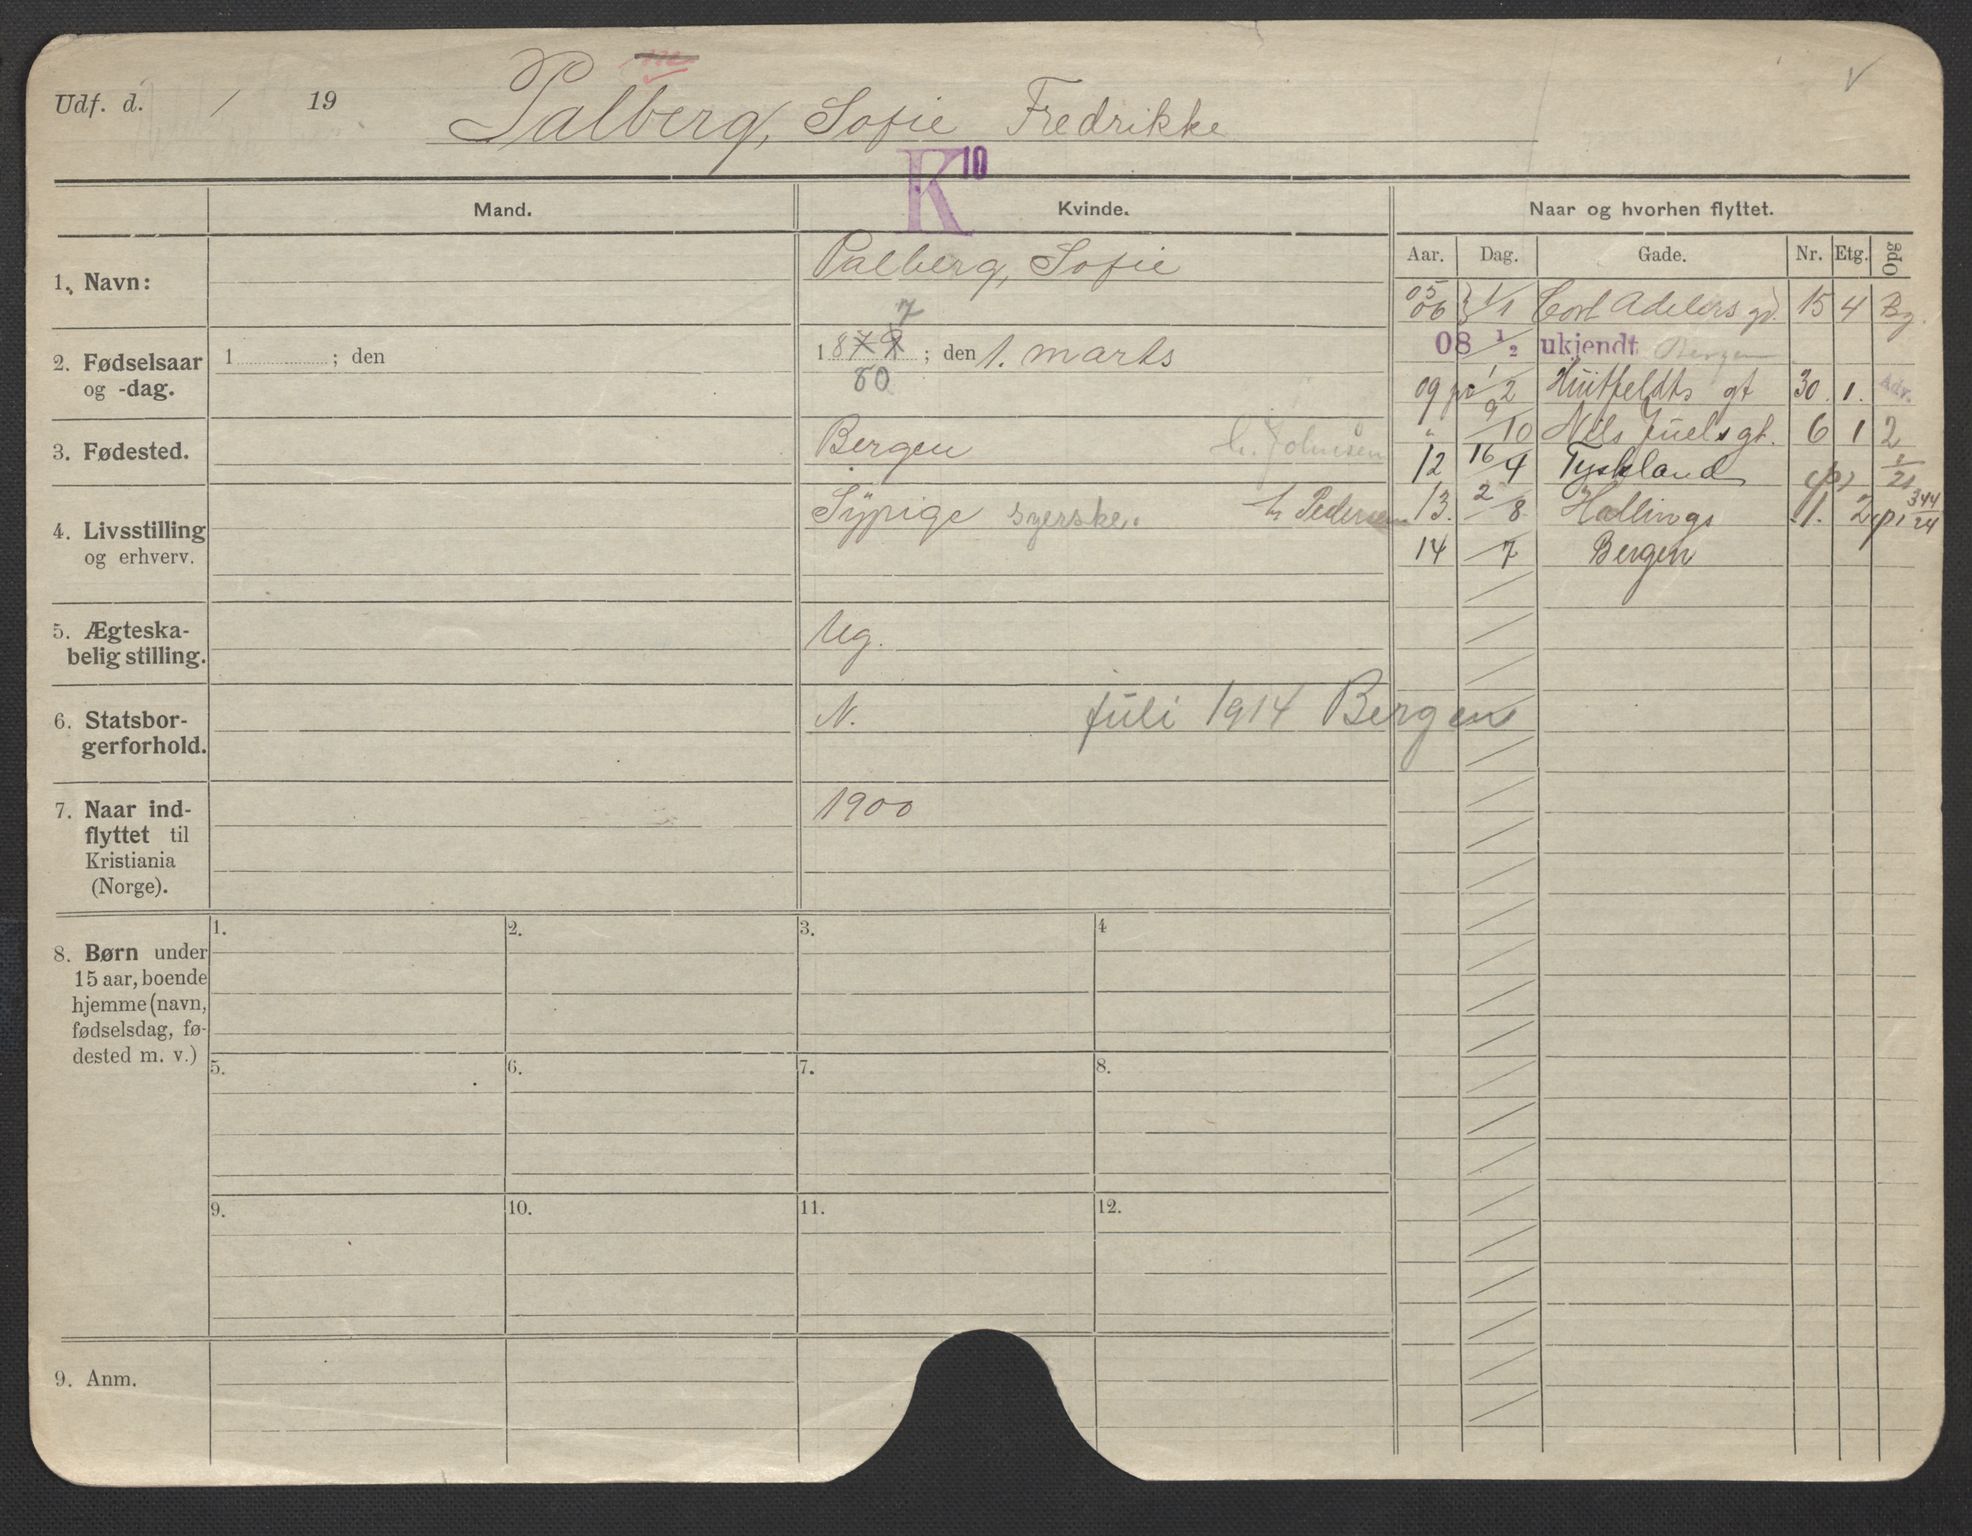 Udf. d. / 19 Palberg, Sofie Fredrikke
K 10
Mand. Kvinde. Naar og hvorhen flyttet.
Aar. Dag. Gade. Nr. Etg. Opg
1. Navn: Palberg, Sofie
2. Fødselsaar og -dag. 1 ; den 1879 ; den 1. marts
7
80
3. Fødested. Bergen h. Johnsen
4. Livsstilling og erhverv. Sÿpige syerske. h Pedersen
5. Ægteska-
belig stilling. Ug.
6. Statsbor-
gerforhold. N. juli 1914 Bergen
7. Naar ind-
flyttet til
Kristiania
(Norge). 1900
8. Børn under
15 aar, boende
hjemme (navn,
fødselsdag, fø-
dested m. v.)
1. 2. 3. 4
5. 6. 7. 8.
9. 10. 11. 12.
9. Anm.
05
06 1/1 Cort Adelers gd. 15 4 Bg.
08 1/2 ukjendt Bergen
09 1/2 Huitfeldts gt 30. 1. Adv.
" 9/10 Nels Juels gt. 6 1 2
12 16/9 Tyskland
13. 2/8 Hallings 1. 2
14 /7 Bergen